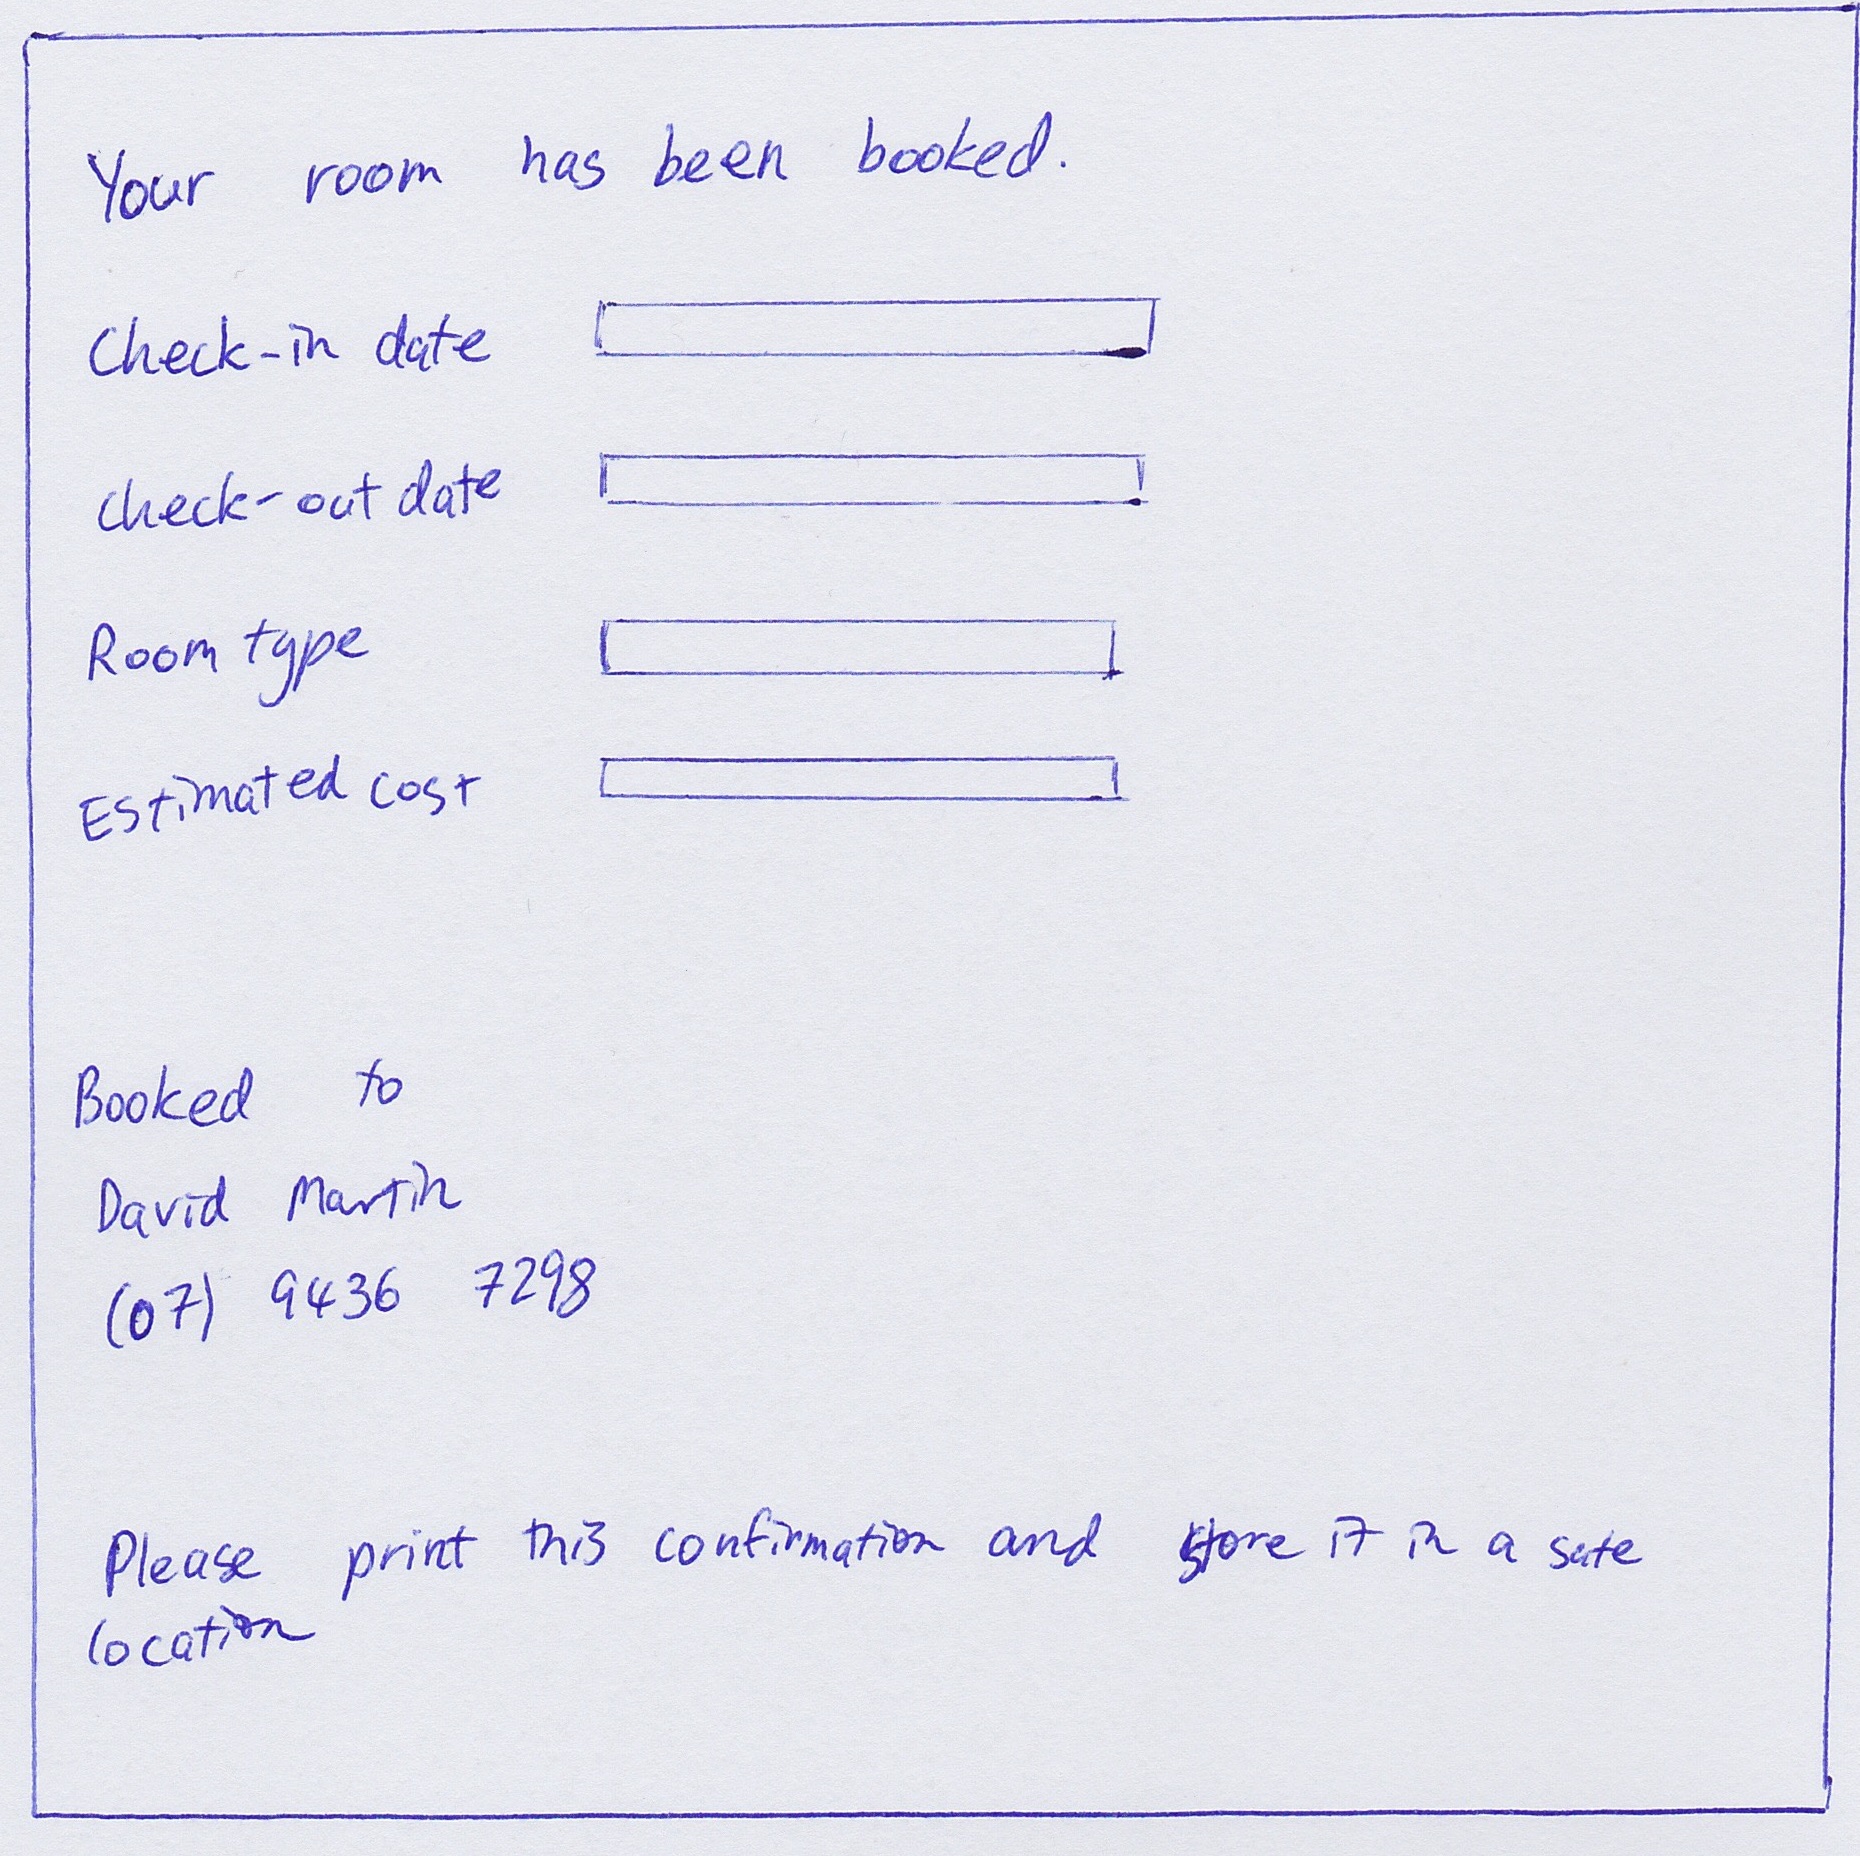 Your room has been booked.
Check-in date
check-out date
Room type
Estimated cost
Booked to
David Martin
(07) 9436 7298
Please print this confirmation and store it in a safe
location